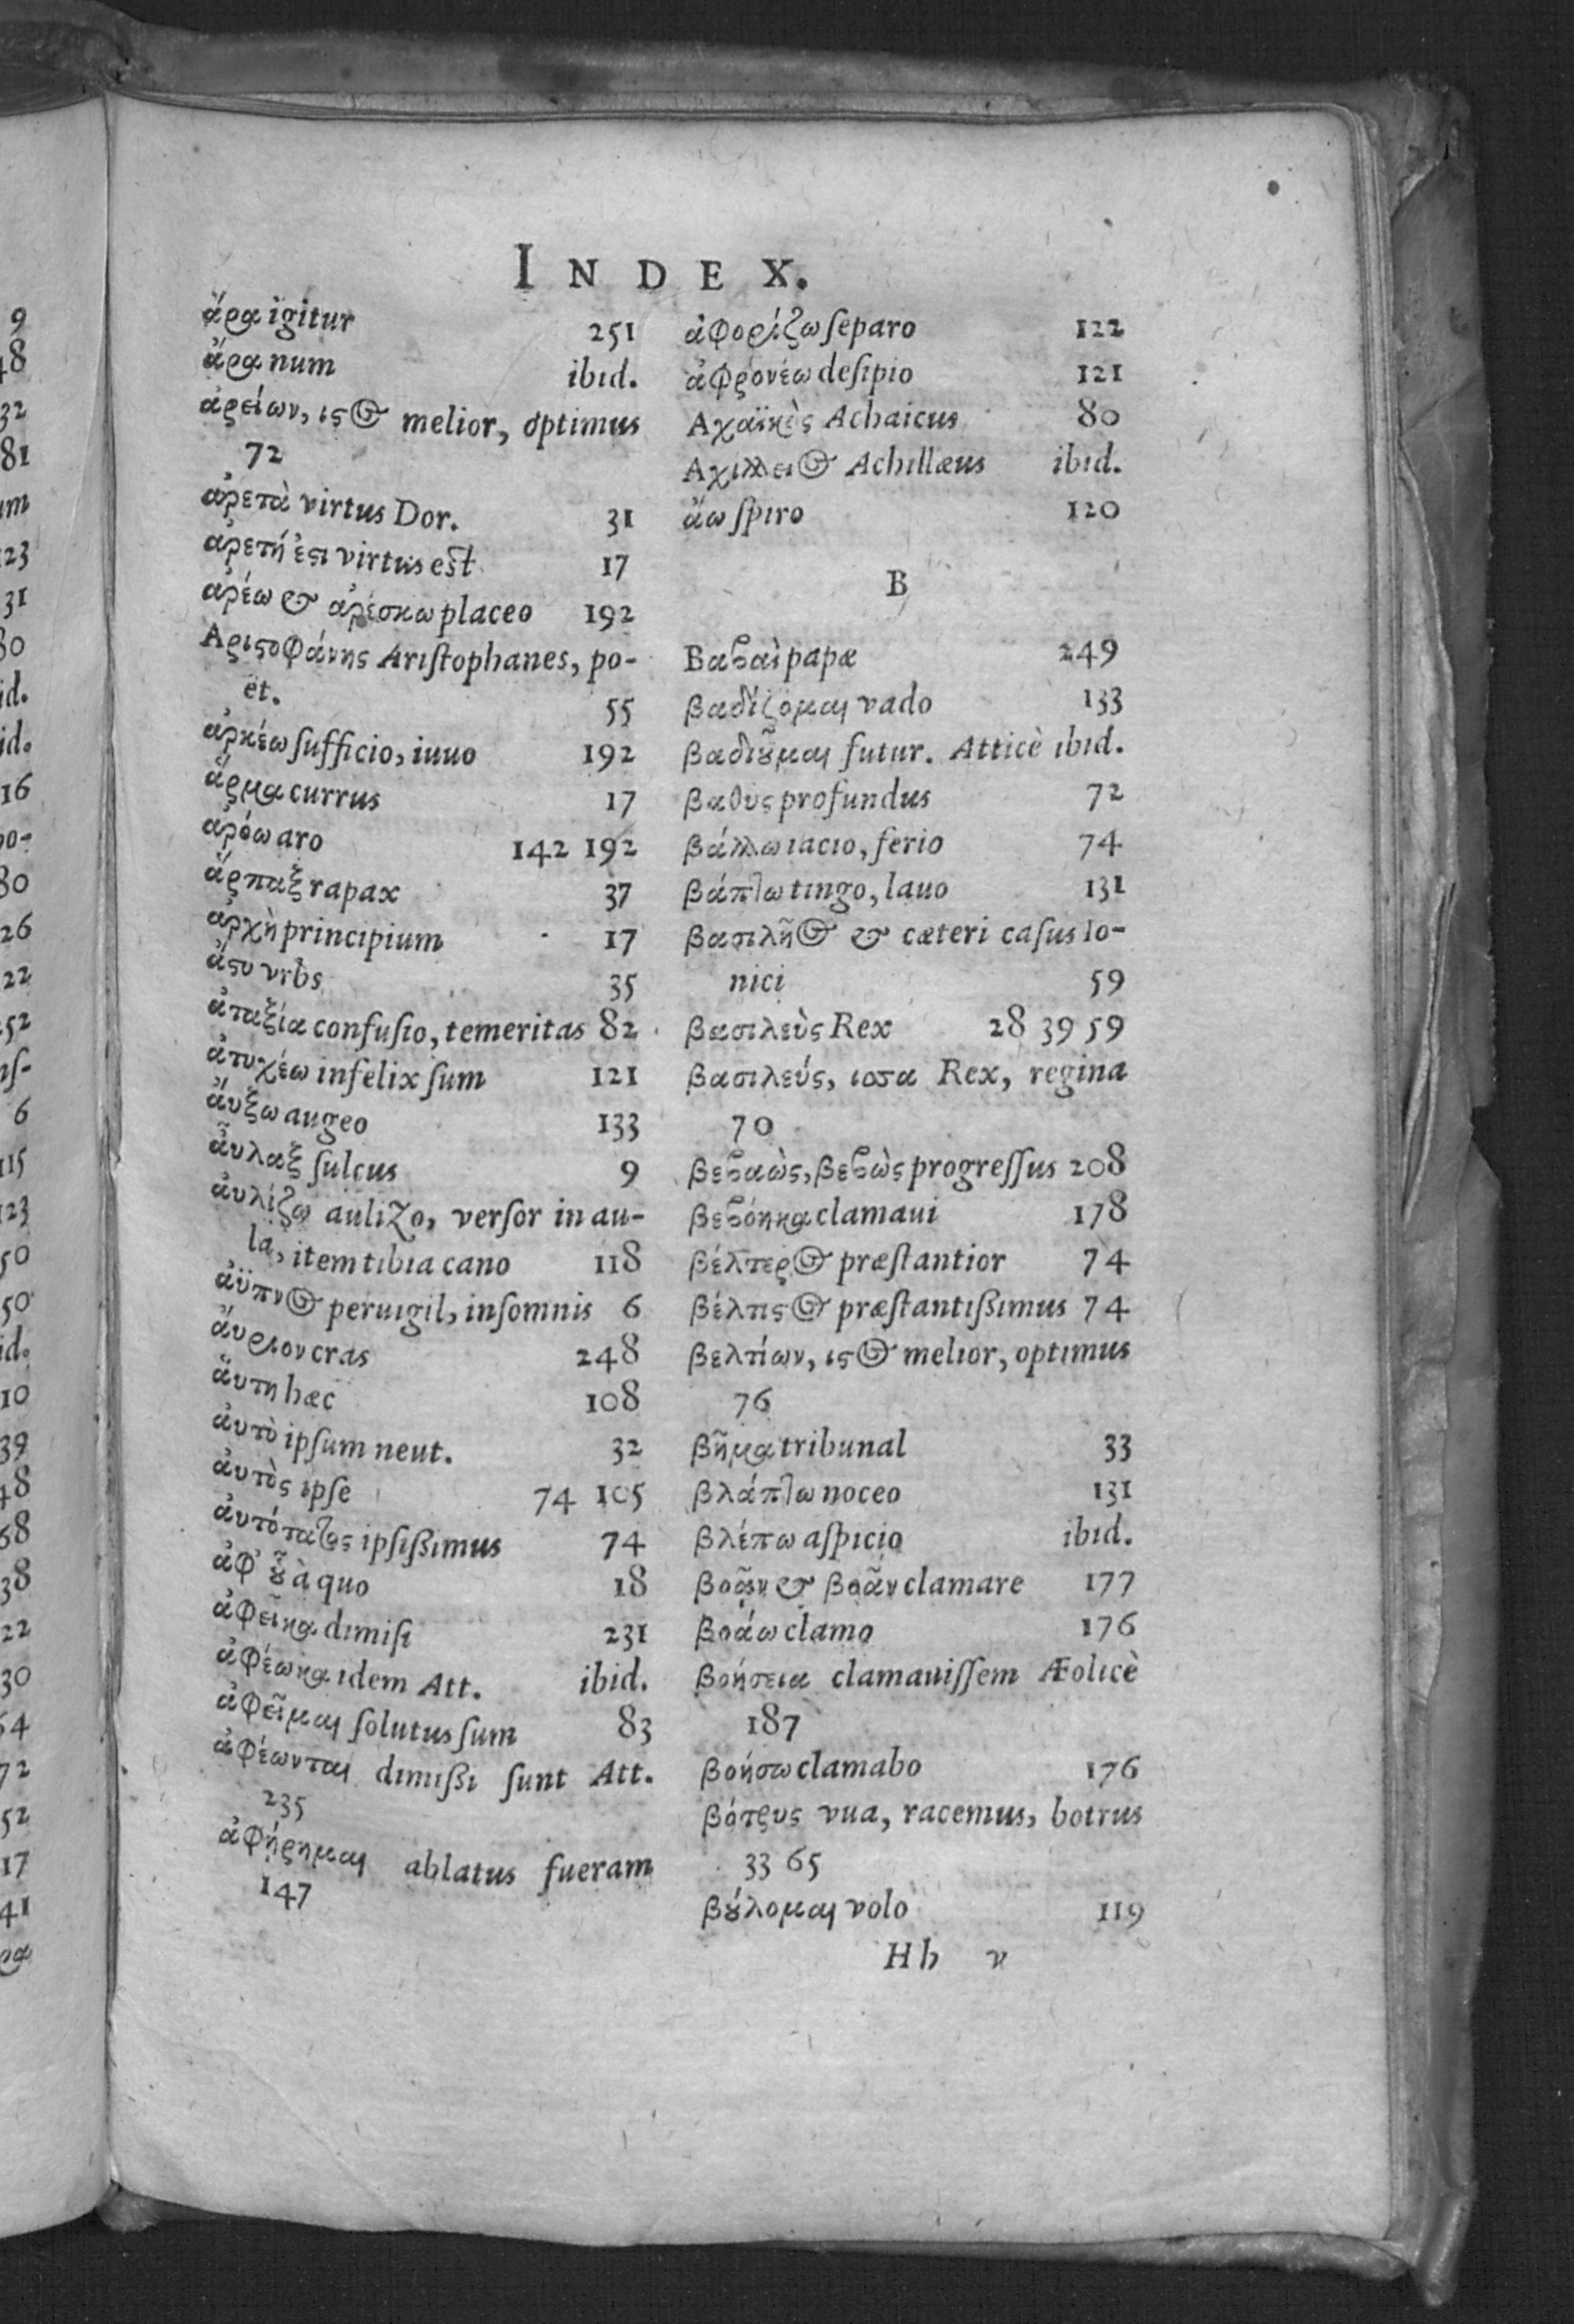 INDEX.
ἄρα igitur 251
ἆρα num ibid.
ἀρείων, ιϛος melior, optimus
72
ἀρετὰ virtus Dor. 31
ἀρετή ἐϛι virtus est 17
ἀρέω & ἀρέσκω placeo 192
Αριϛοφάνης Ariſtophanes, po-
et. 55
ἀρκέω ſufficio, iuuo 192
ἅρμα currus 17
ἀρόω aro 142 192
ἅρπαξ rapax 37
ἀρχὴ principium 17
ἄϛυ vrbs 35
ἀταξία confuſio, temeritas 82
ἀτυχέω infelix ſum 121
ἀύξω augeo 133
ἄυλαξ ſulcus 9
ἀυλίζω aulizo, verſor in au-
la, item tibia cano 118
ἀϋπνος peruigil, inſomnis 6
ἄυριον cras 248
ἅυτη hæc 108
ἀυτὸ ipſum neut. 32
ἀυτὸς ipſe 74 105
ἀυτότατος ipſißimus 74
ἀφ' ȣ̃ à quo 18
ἀφεῖκα dimiſi 231
ἀφέωκα idem Att. ibid.
ἀφεῖμαι ſolutus ſum 83
ἀφέωνται dimißi ſunt Att.
235
ἀφήρημαι ablatus fueram
147
ἀφορίζω ſeparo 122
ἀφρονέω deſipio 121
Αχαϊκὸς Achaicus 80
Αχιλλειος Achillæus ibid.
ἄω ſpiro 120
B
Βαβαὶ papæ 249
βαδίζομαι vado 133
βαδιȣ͂μαι futur. Atticè ibid.
βαθυς profundus 72
βάλλω iacio, ferio 74
βάπτω tingo, lauo 131
βασιλῆος & cæteri caſus Io-
nici 59
βασιλεὺς Rex 28 39 59
βασιλεύς, ισσα Rex, regina
70
βεβαὼς, βεβὼς progreſſus 208
βεβόηκα clamaui 178
βέλτερος præſtantior 74
βέλτιϛος præſtantißimus 74
βελτίων, ιϛος melior, optimus
76
βῆμα tribunal 33
βλάπτω noceo 131
βλέπω aſpicio ibid.
βοᾷν & βοᾶν clamare 177
βοάω clamo 176
βοήσεια clamauiſſem Æolicè
187
βοήσω clamabo 176
βότρυς vua, racemus, botrus
33 65
βȣ́λομαι volo 119
Hh v